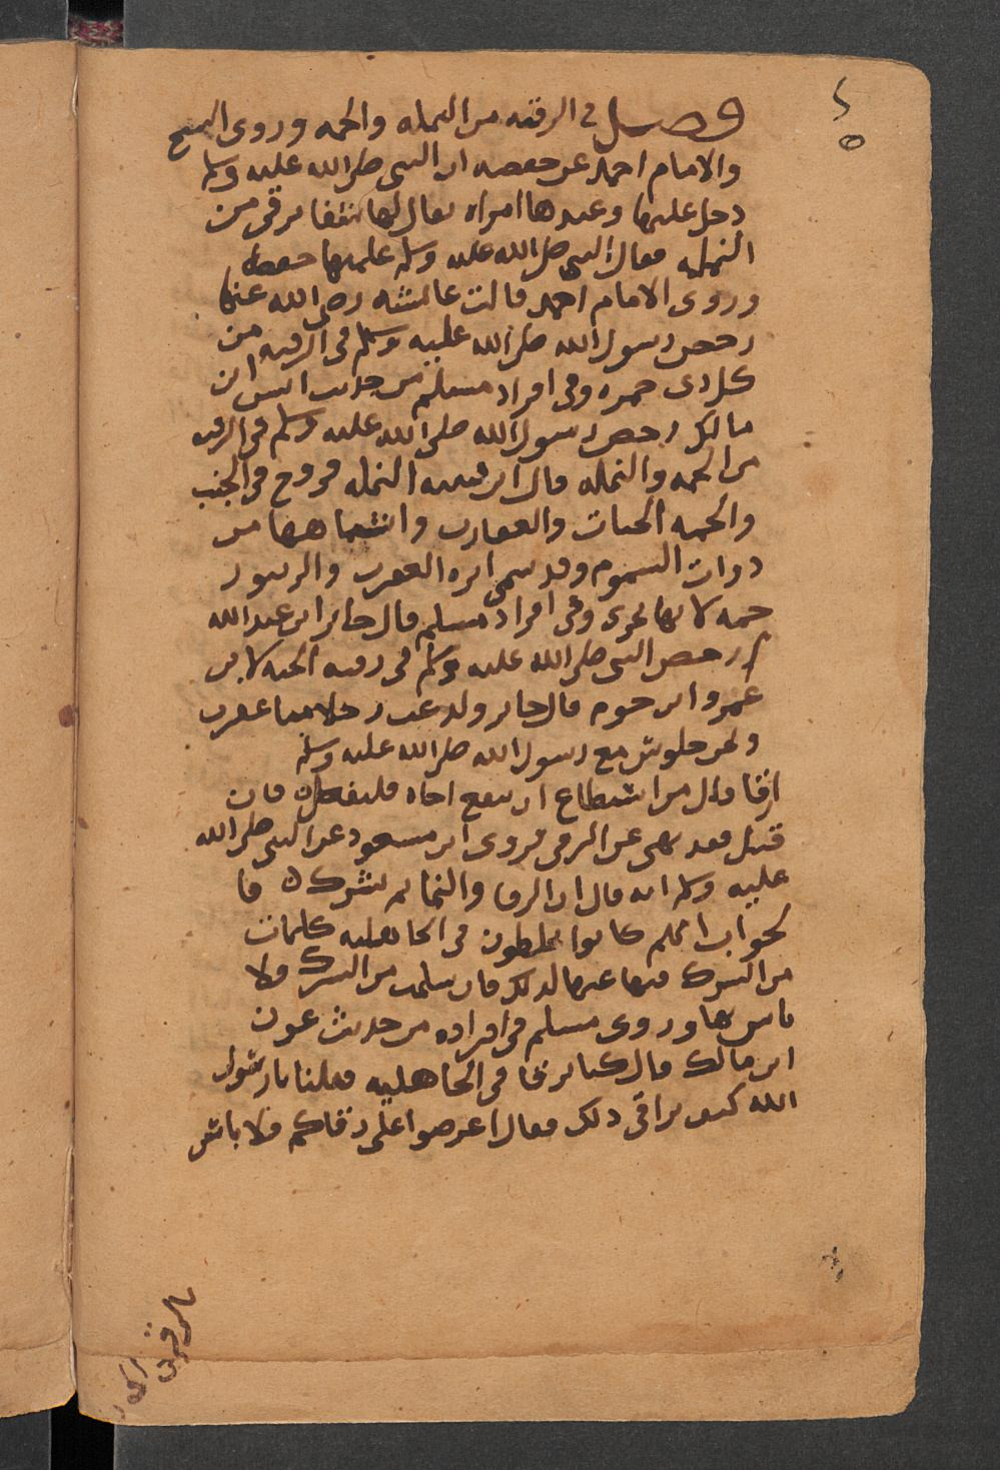 فصل في الرقيه من النمله والحمه وروى الشيخ
والامام احمد عن حفصه ان النبي صلى الله عليه وسلم
دخل عليها وعندها امراه يقال لها شفا ترقى من
النمله فقال النبي صلى الله عليه وسلم علميها حفصه
وروى الامام احمد قالت عائشه رضي الله عنها
رخص رسول الله صلى الله عليه وسلم في الرقيه من
كل ذي حمه وفي افراد مسلم من حديث انس ابن
مالك رخص رسول الله صلى الله عليه وسلم في الرقيه
من الحمه والنمله قال ابن قتيبه النمله قروح في الجنب
والحمه الحيات والعقارب واشباهها من
ذوات السموم وقد سمى ابره العقرب والزنبور
حمه لانها تجري وفي افراد مسلم قال جابر ابن عبد الله
رخص النبي صلى الله عليه وسلم في رقيه الحيه لابن
عمرو ابن حزم قال جابر ولدغت رجلا منا عقرب
ونحن جلوس مع رسول الله صلى الله عليه وسلم
ارقا قال من استطاع ان ينفع اخاه فليفعل ٥ فان
قيل فقد نهى عن الرقى فروى ابن مسعود عن النبي صلى الله
عليه وسلم انه قال ان الرقا والتمايم شرك ٥ فا
لجواب انهم كانوا يخلطون في الجاهليه كلمات
من الشرك فيها عنها لذلك فان سلمت من الشرك فلا
باس بها وروى مسلم في افراده من حديث عون
ابن مالك قال كنا نرقا في الجاهليه فقلنا يا رسول
الله كيف ترا في ذلك فقال اعرضوا على رقاكم فلا باس
بالرقى